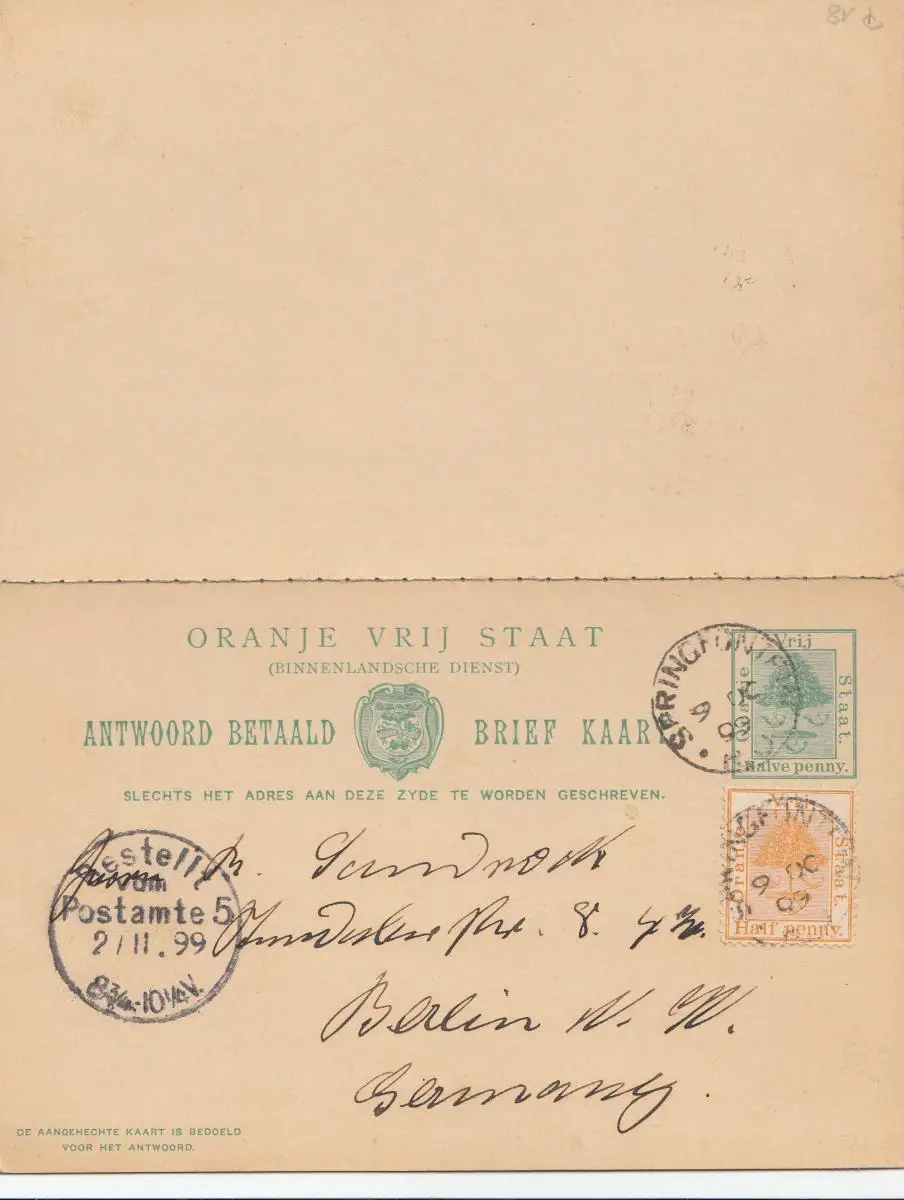 ORANJE VRIJ STAAT
(BINNENLANDSCHE DIENST)
ANTWOORD BETAALD BRIEF KAART
SLECHTS HET ADRES AAN DEZE ZYDE TE WORDEN GESCHREVEN.
SPRINGFONTEIN
9 OC
99
Oranje Vrij Staat.
Halve penny.
SPRINGFONTEIN
9 OC
99
Oranje Vrij Staat.
Half penny.
Bestellt
vom
Postamte 5
2/11.99
8¾-10¼V.
Herrn
Berlin N. W.
Germany.
DE AANGEHECHTE KAART IS BEDOELD
VOOR HET ANTWOORD.